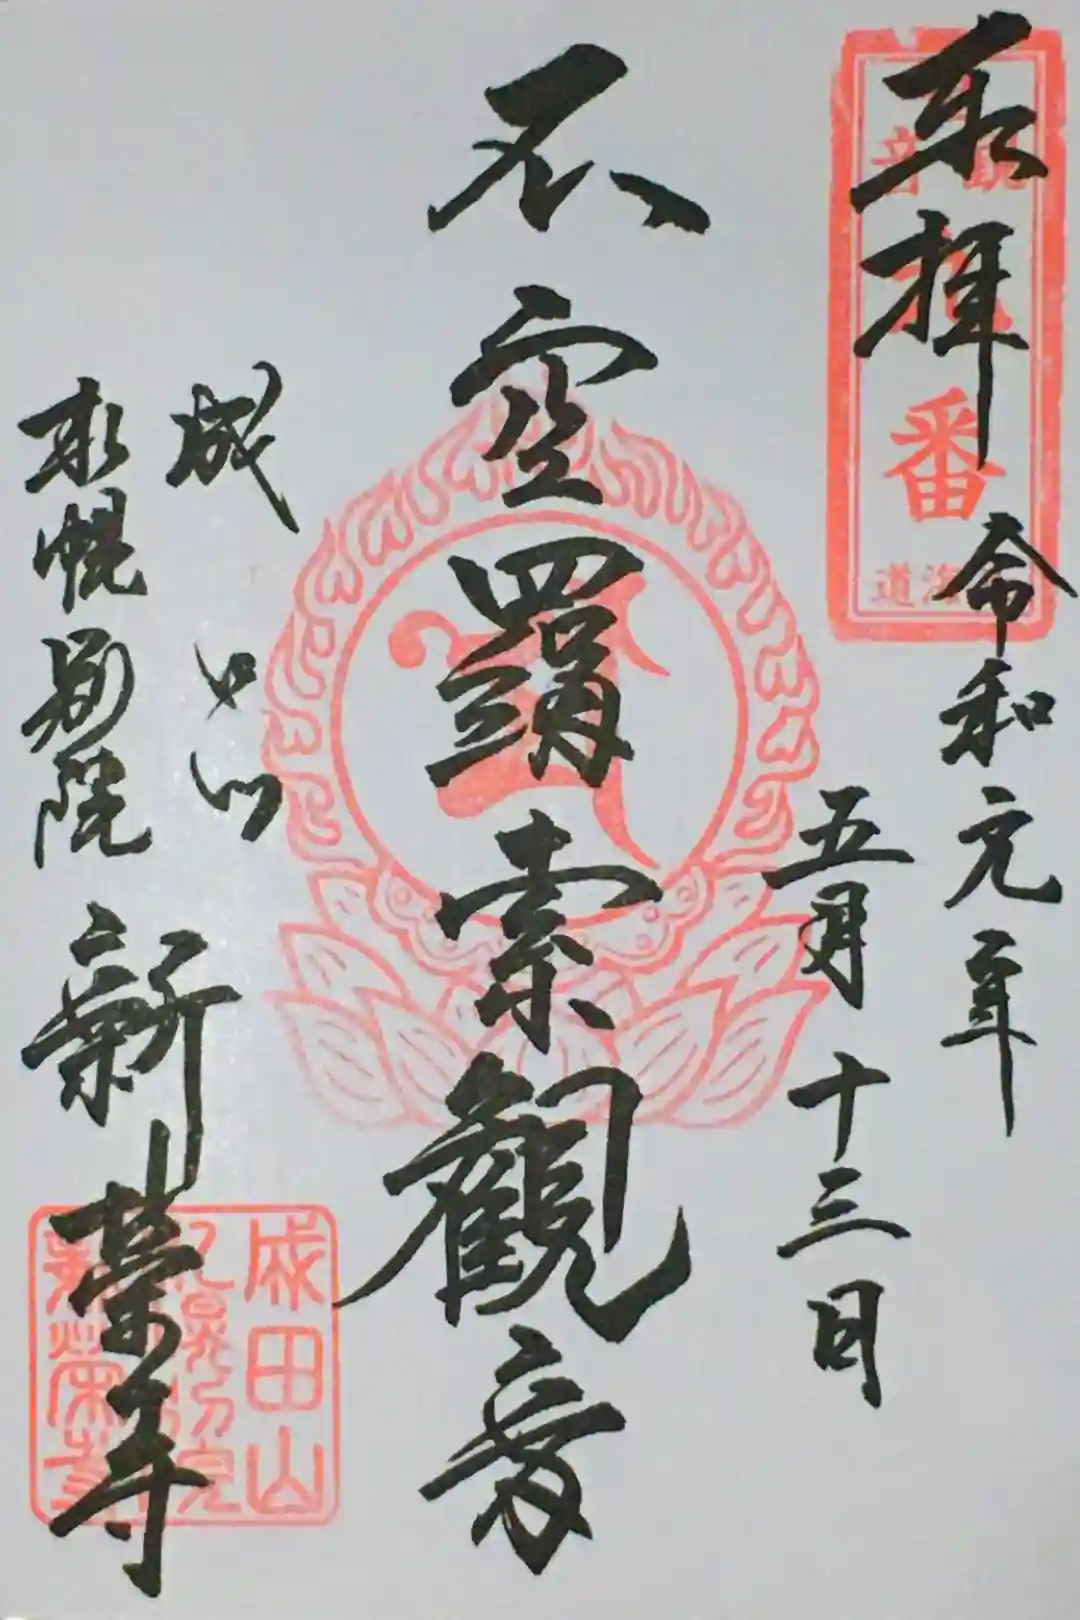 奉拝
令和元年
五月十三日
不空羂索観音
成田山
札幌別院
新栄寺
観音
番
海道
成田山
札幌別院
新榮寺